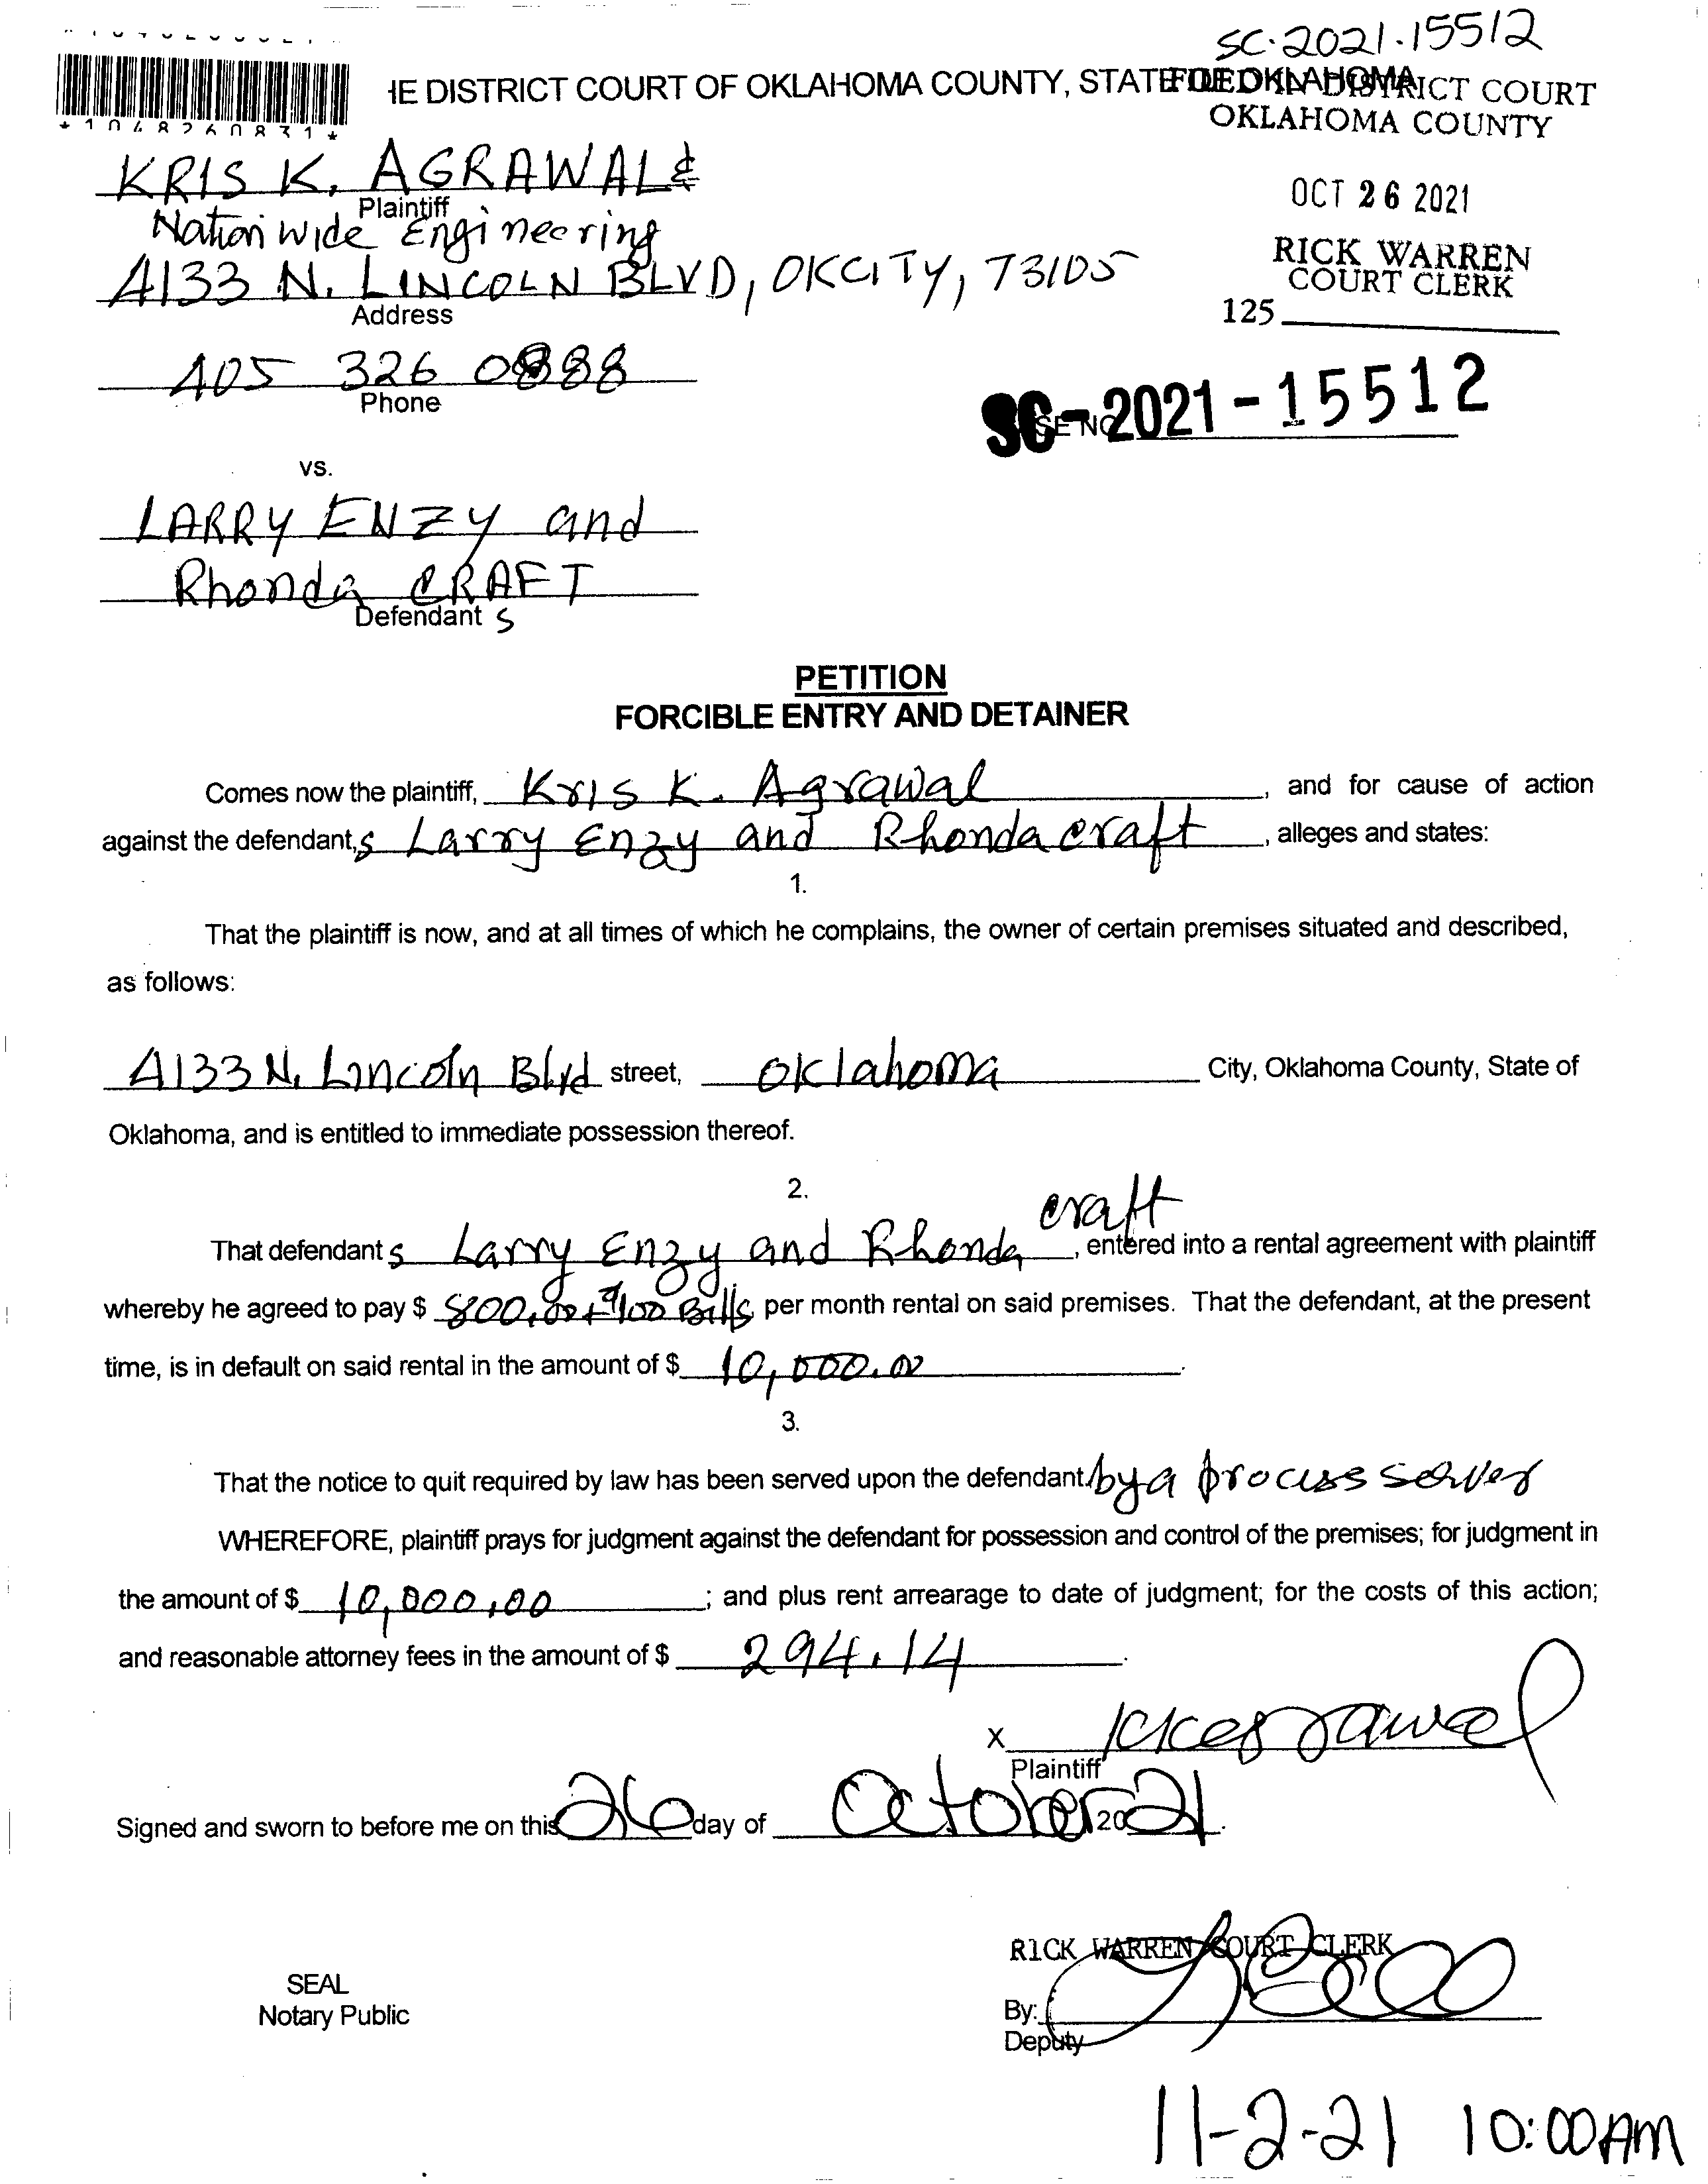 SC-2021-15512
HE DISTRICT COURT OF OKLAHOMA COUNTY, STATE OF OKLAHOMA
FILED IN DISTRICT COURT
OKLAHOMA COUNTY
*1048260831*
KRIS K. AGRAWAL &
Plaintiff
Nationwide Engineering
OCT 26 2021
4133 N. LINCOLN BLVD, OKCITY, 73105
Address
RICK WARREN
COURT CLERK
125
405 326 0888
Phone
SC-2021-15512
SE NO
vs.
LARRY ENZY and
Rhonda CRAFT
Defendant s
PETITION
FORCIBLE ENTRY AND DETAINER
Comes now the plaintiff, Kris K. Agrawal, and for cause of action
against the defendant,s Larry Enzy and Rhonda craft, alleges and states:
1.
That the plaintiff is now, and at all times of which he complains, the owner of certain premises situated and described,
as follows:
4133 N. Lincoln Blvd street, Oklahoma City, Oklahoma County, State of
Oklahoma, and is entitled to immediate possession thereof.
2.
craft
That defendant s Larry Enzy and Rhonda, entered into a rental agreement with plaintiff
whereby he agreed to pay $ 800.00 + Bills per month rental on said premises. That the defendant, at the present
time, is in default on said rental in the amount of $ 10,000.00.
3.
That the notice to quit required by law has been served upon the defendant. by a process server
WHEREFORE, plaintiff prays for judgment against the defendant for possession and control of the premises; for judgment in
the amount of $ 10,000.00; and plus rent arrearage to date of judgment; for the costs of this action;
and reasonable attorney fees in the amount of $ 294.14.
X KKAgrawal
Plaintiff
Signed and sworn to before me on this 26 day of October, 2021.
RICK WARREN COURT CLERK
SEAL
Notary Public
By:
Deputy
11-2-21 10:00AM